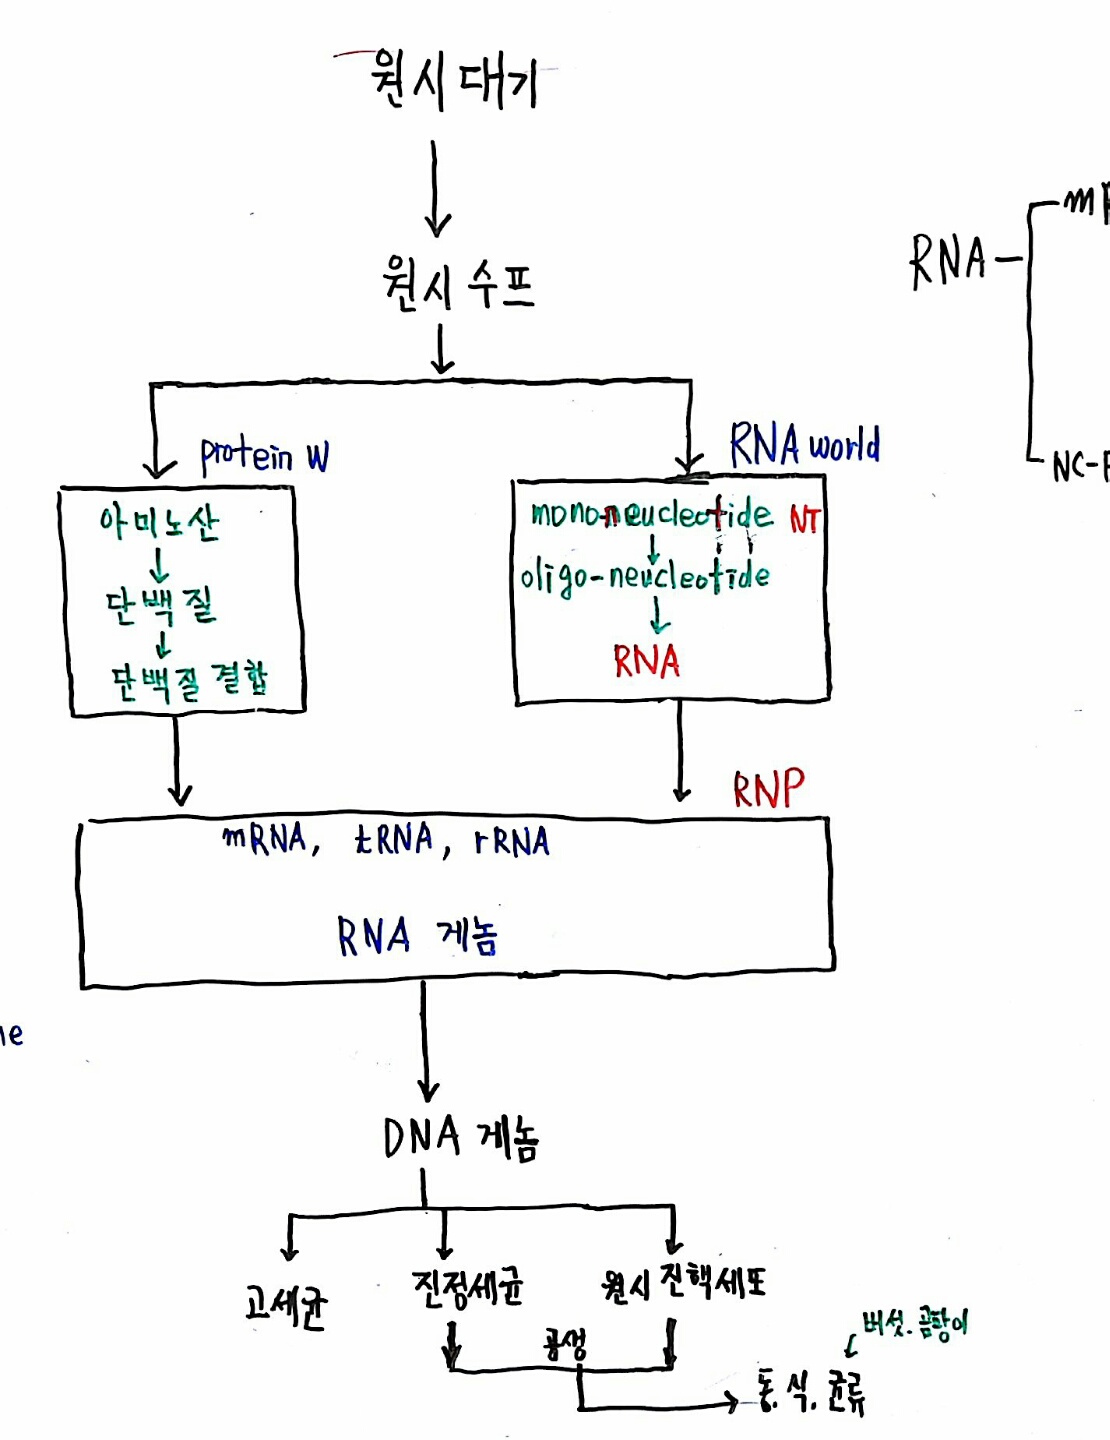 원시 대기
원시 수프
RNA
protein W
RNA world
아미노산
단백질
단백질 결합
mono-neucleotide NT
oligo-neucleotide
RNA
RNP
mRNA, tRNA, rRNA
RNA 게놈
DNA 게놈
고세균
진정세균
원시 진핵세포
공생
버섯. 곰팡이
동. 식. 균류